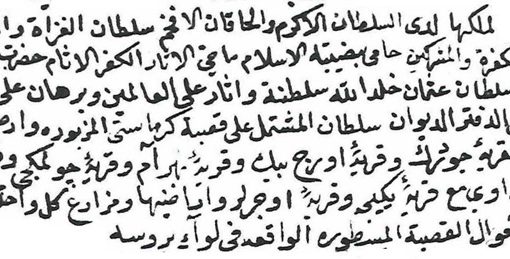 لملكها لدى السلطان الاكرم والخاقان الافخم سلطان الغزاة وا
كفرة والمشركين حامى بيضة الاسلام ماحى الاثار الكفر الاثام حضرت
سلطان عثمان خلد الله سلطنته وانار على العالمين وبرهان على
الدفتر الديوان سلطان المشتمل على قصبة كرماستى المزبوره وارا
قرية جوترك وقرية اورج بيك وقرية بهرام وقرية جولمكجى و
اوى مع قرية يكيجى وقرية اوجرلر واياضيها ومزارع كل واحد
حوال القصبة المسطوره الواقعه فى لواء بروسه